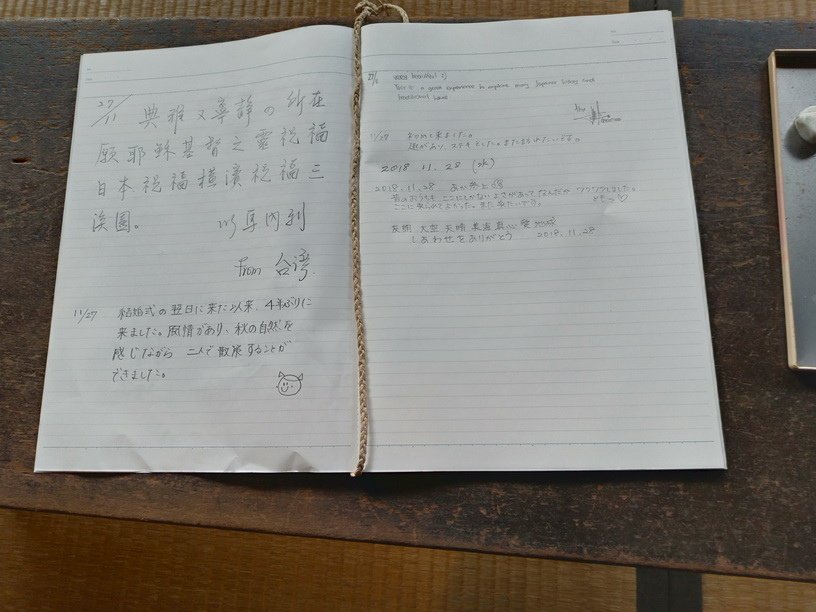 27/11 典雅又尊静の所在
願耶穌基督之靈祝福
日本祝福横濱祝福三
溪園。 以馬內利
from 台湾.
11/27 結婚式の翌日に来た以来、4年ぶりに
来ました。風情があり、秋の自然を
感じながら 二人で散策することが
できました。
27/11 very beautiful :)
This is a great experience to explore many Japanese history and
traditional house
11/27 初めて来ました。
趣があり、ステキでした。また訪れたいです。
2018 11. 28 (水)
2018.11.28
昔のおうちも ここにしかないよさがあって なんだか ワクワクしました。
ここに来られてよかった。また来たいです。
友明 大空 天晴 美海 真心 愛
しあわせをありがとう 2018.11.28